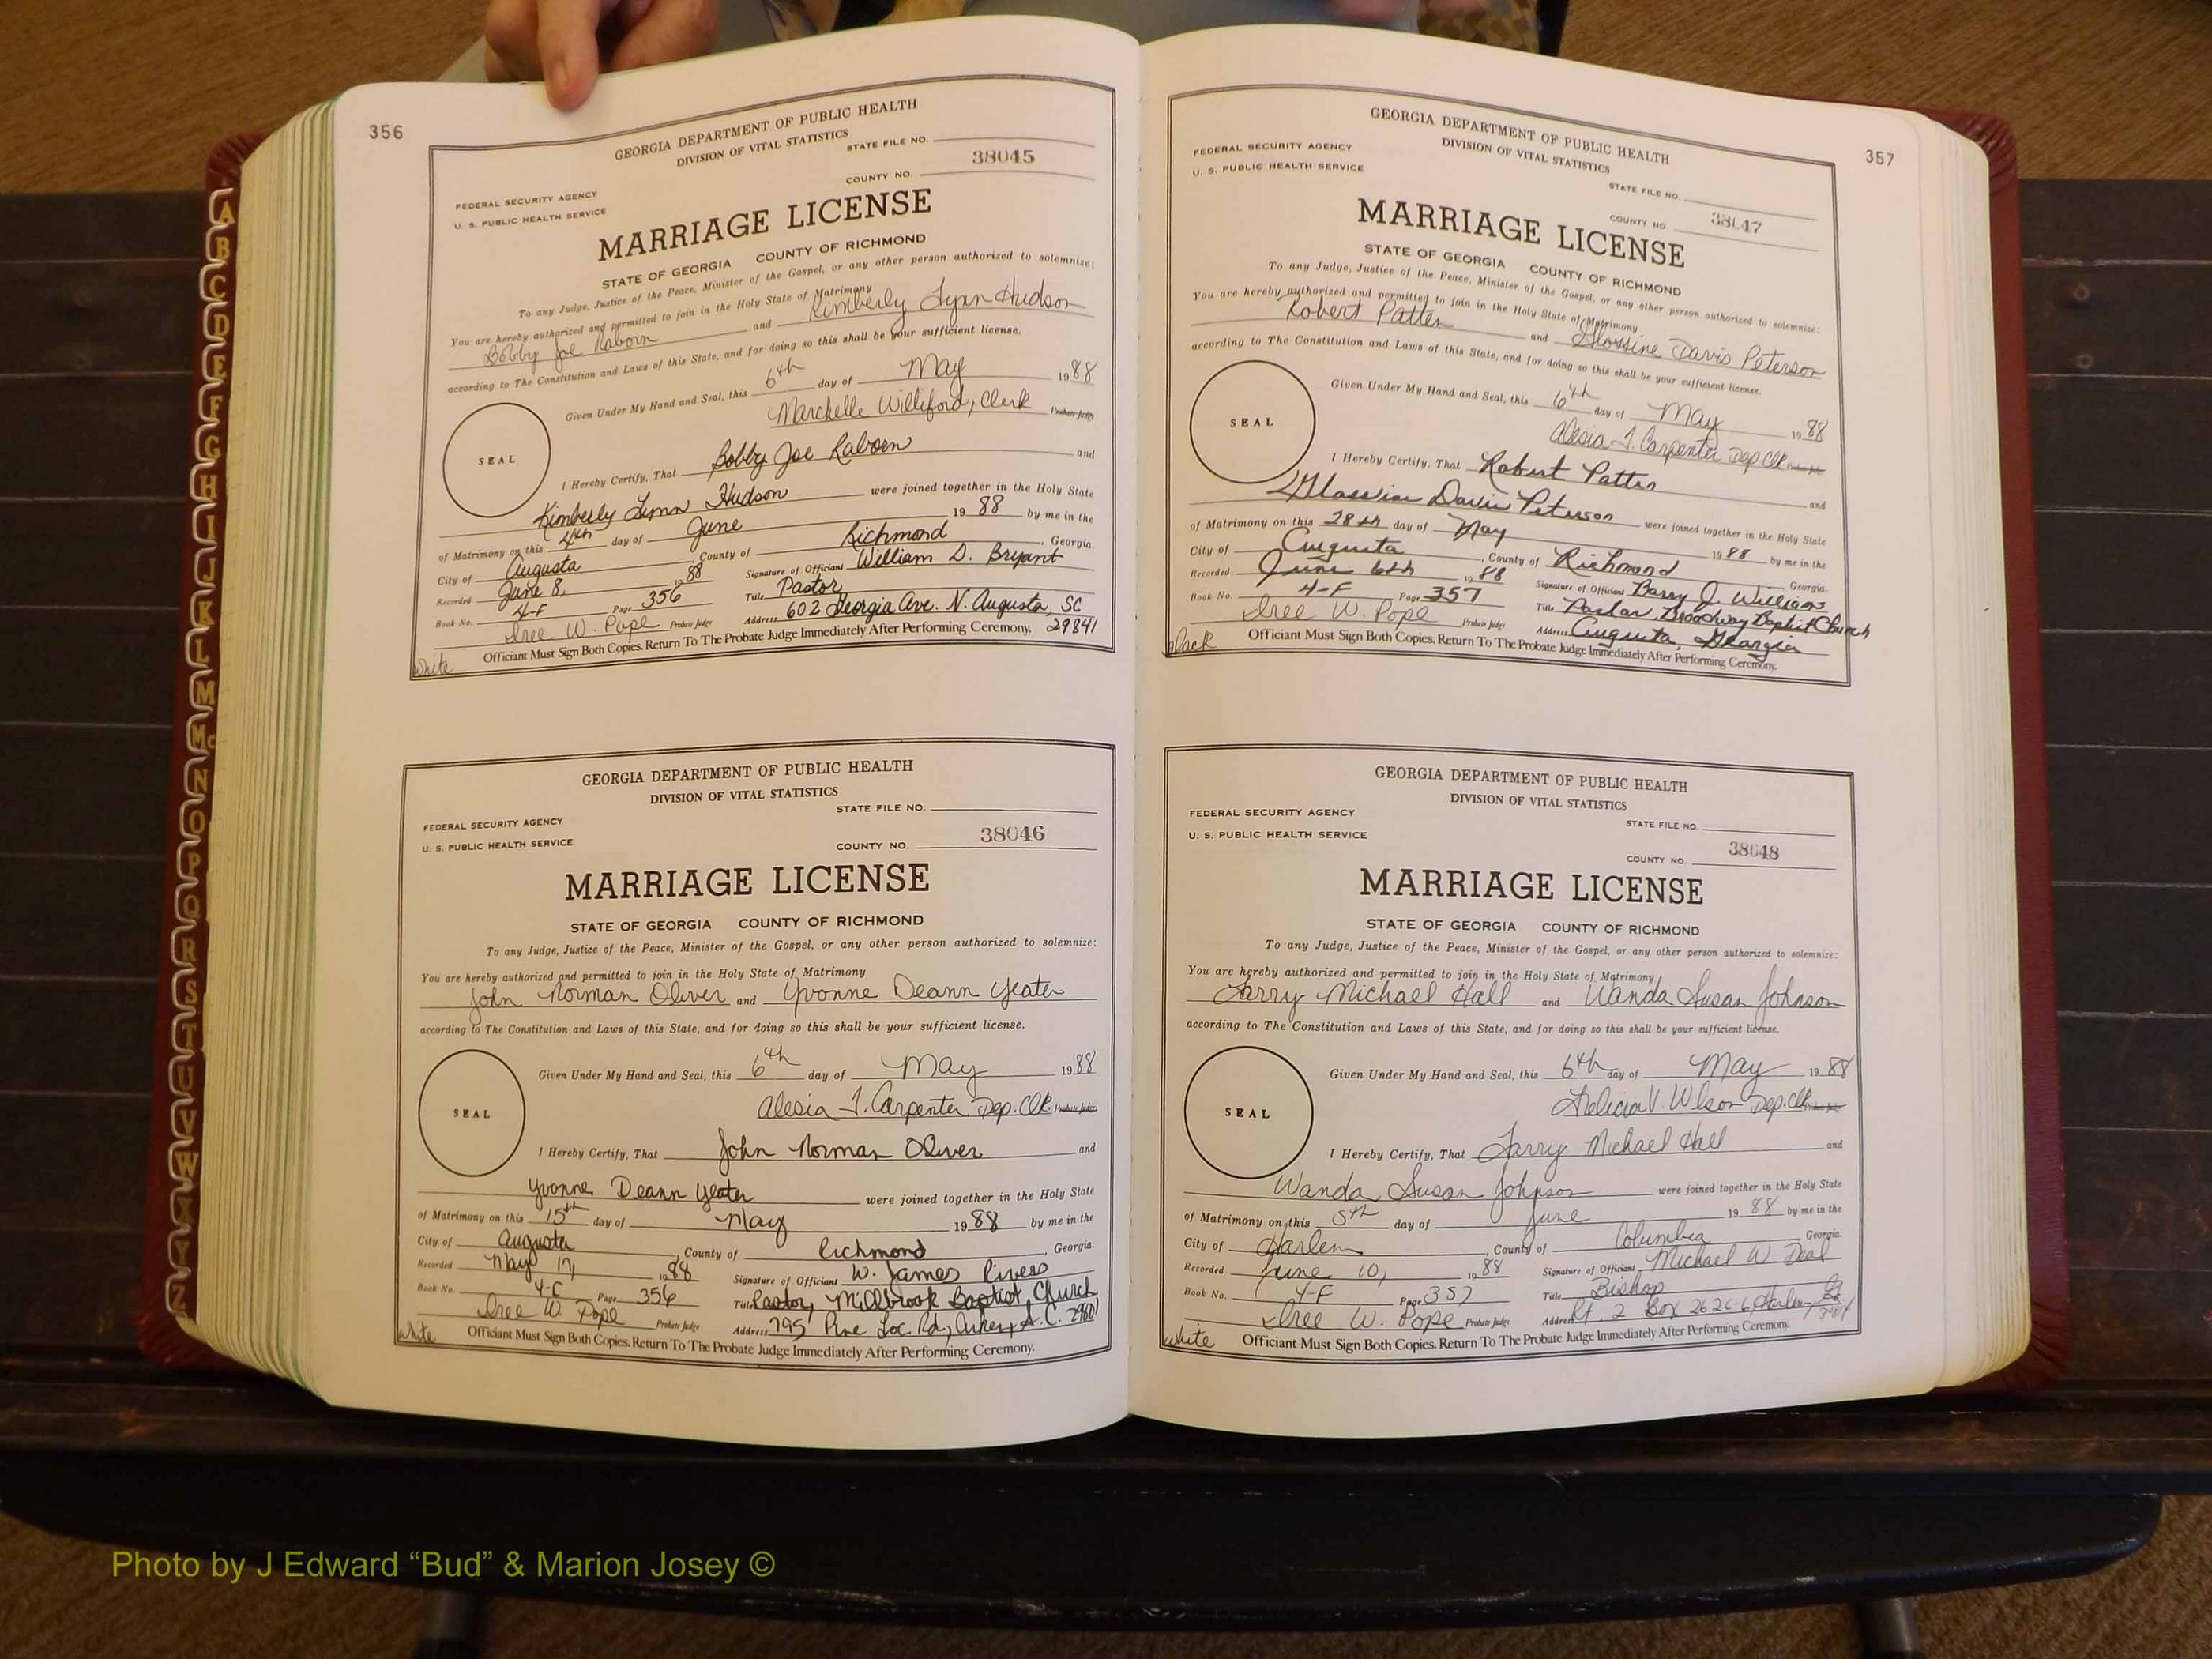 356
GEORGIA DEPARTMENT OF PUBLIC HEALTH
DIVISION OF VITAL STATISTICS
STATE FILE NO.
38045
COUNTY NO.
FEDERAL SECURITY AGENCY
U. S. PUBLIC HEALTH SERVICE
MARRIAGE LICENSE
STATE OF GEORGIA COUNTY OF RICHMOND
To any Judge, Justice of the Peace, Minister of the Gospel, or any other person authorized to solemnize:
You are hereby authorized and permitted to join in the Holy State of Matrimony
Bobby Joe Raborn and Kimberly Lynn Hudson
according to The Constitution and Laws of this State, and for doing so this shall be your sufficient license.
Given Under My Hand and Seal, this 6th day of May 1988
Marchelle Williford, Clerk Probate Judge
SEAL
I Hereby Certify, That Bobby Joe Raborn and
Kimberly Lynn Hudson were joined together in the Holy State
of Matrimony on this 4th day of June 1988 by me in the
City of Augusta, County of Richmond, Georgia.
Recorded June 8, 1988 Signature of Officiant William D. Bryant
Book No. 4-F Page 356 Title Pastor
Iree W. Pope Probate Judge Address 602 Georgia Ave. N. Augusta, SC 29841
white Officiant Must Sign Both Copies. Return To The Probate Judge Immediately After Performing Ceremony.
GEORGIA DEPARTMENT OF PUBLIC HEALTH
DIVISION OF VITAL STATISTICS
STATE FILE NO.
FEDERAL SECURITY AGENCY
38046
U. S. PUBLIC HEALTH SERVICE COUNTY NO.
MARRIAGE LICENSE
STATE OF GEORGIA COUNTY OF RICHMOND
To any Judge, Justice of the Peace, Minister of the Gospel, or any other person authorized to solemnize:
You are hereby authorized and permitted to join in the Holy State of Matrimony
John Norman Oliver and Yvonne Deann Yeater
according to The Constitution and Laws of this State, and for doing so this shall be your sufficient license.
Given Under My Hand and Seal, this 6th day of May 1988
Alesia T. Carpenter Dep. Clk. Probate Judge
SEAL
I Hereby Certify, That John Norman Oliver and
Yvonne Deann Yeater were joined together in the Holy State
of Matrimony on this 15th day of May 1988 by me in the
City of Augusta, County of Richmond, Georgia.
Recorded May 17, 1988 Signature of Officiant W. James Rivers
Book No. 4-F Page 356 Title Pastor, Millbrook Baptist Church
Iree W. Pope Probate Judge Address 795 Pine Loc. Rd, Aiken, S.C.
white Officiant Must Sign Both Copies. Return To The Probate Judge Immediately After Performing Ceremony.
357
GEORGIA DEPARTMENT OF PUBLIC HEALTH
DIVISION OF VITAL STATISTICS
FEDERAL SECURITY AGENCY
U. S. PUBLIC HEALTH SERVICE
STATE FILE NO.
COUNTY NO. 38047
MARRIAGE LICENSE
STATE OF GEORGIA COUNTY OF RICHMOND
To any Judge, Justice of the Peace, Minister of the Gospel, or any other person authorized to solemnize:
You are hereby authorized and permitted to join in the Holy State of Matrimony
Robert Patten and Glossine Davis Peterson
according to The Constitution and Laws of this State, and for doing so this shall be your sufficient license.
Given Under My Hand and Seal, this 6th day of May 1988
Alesia T. Carpenter Dep Clk Probate Judge
SEAL
I Hereby Certify, That Robert Patten and
Glossine Davis Peterson were joined together in the Holy State
of Matrimony on this 28th day of May 1988 by me in the
City of Augusta, County of Richmond Georgia.
Recorded June 6th 1988 Signature of Officiant Barry J. Williams
Book No. 4-F Page 357 Title Pastor, Broadway Baptist Church
Iree W. Pope Probate Judge Address Augusta, Georgia
black Officiant Must Sign Both Copies. Return To The Probate Judge Immediately After Performing Ceremony.
GEORGIA DEPARTMENT OF PUBLIC HEALTH
DIVISION OF VITAL STATISTICS
FEDERAL SECURITY AGENCY STATE FILE NO.
U. S. PUBLIC HEALTH SERVICE
COUNTY NO. 38048
MARRIAGE LICENSE
STATE OF GEORGIA COUNTY OF RICHMOND
To any Judge, Justice of the Peace, Minister of the Gospel, or any other person authorized to solemnize:
You are hereby authorized and permitted to join in the Holy State of Matrimony
Larry Michael Hall and Wanda Susan Johnson
according to The Constitution and Laws of this State, and for doing so this shall be your sufficient license.
Given Under My Hand and Seal, this 6th day of May 1988
Felicia V. Wlson Dep. Clk.
SEAL
I Hereby Certify, That Larry Michael Hall and
Wanda Susan Johnson were joined together in the Holy State
of Matrimony on this 5th day of June 1988 by me in the
City of Harlem, County of Columbia Georgia.
Recorded June 10, 1988 Signature of Officiant Michael W. Deal
Book No. 4-F Page 357 Title Bishop
Iree W. Pope Probate Judge Address Rt. 2 Box 262C-6, Harlem, Ga
white Officiant Must Sign Both Copies. Return To The Probate Judge Immediately After Performing Ceremony.
A
B
C
D
E
F
G
H
I
J
K
L
M
Mc
N
O
P
Q
R
S
T
U
V
W
X
Y
Z
Photo by J Edward “Bud” & Marion Josey ©